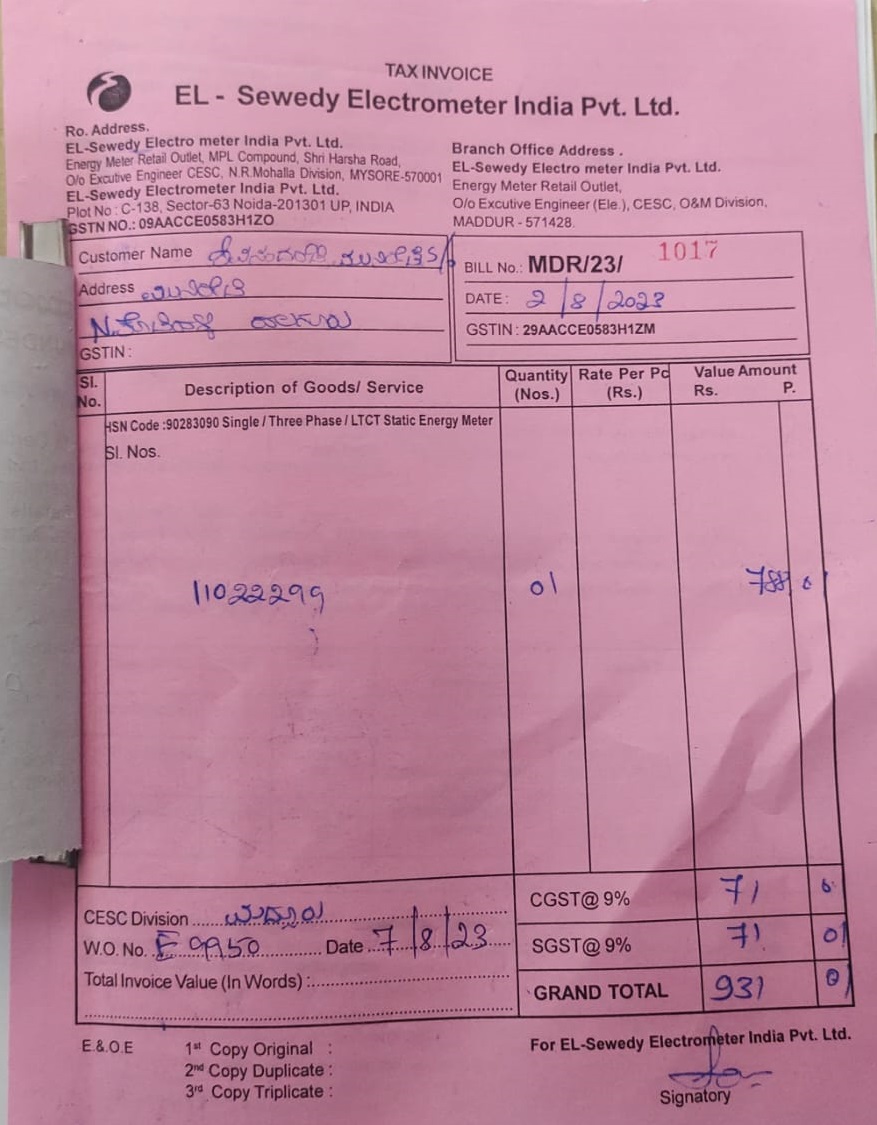 TAX INVOICE
EL - Sewedy Electrometer India Pvt. Ltd.
Ro. Address.
EL-Sewedy Electro meter India Pvt. Ltd.
Energy Meter Retail Outlet, MPL Compound, Shri Harsha Road,
O/o Excutive Engineer CESC, N.R.Mohalla Division, MYSORE-570001
EL-Sewedy Electrometer India Pvt. Ltd.
Plot No : C-138, Sector-63 Noida-201301 UP, INDIA
GSTN NO.: 09AACCE0583H1ZO
Branch Office Address .
EL-Sewedy Electro meter India Pvt. Ltd.
Energy Meter Retail Outlet,
O/o Excutive Engineer (Ele.), CESC, O&M Division,
MADDUR - 571428.
Customer Name
Address
GSTIN :
BILL No.: MDR/23/ 1017
DATE : 2/8/2023
GSTIN : 29AACCE0583H1ZM
Sl. No. Description of Goods/ Service Quantity (Nos.) Rate Per Pc (Rs.) Value Amount Rs. P.
HSN Code :90283090 Single / Three Phase / LTCT Static Energy Meter
Sl. Nos.
11022299 01 788
CGST@ 9% 71
CESC Division
SGST@ 9% 71
W.O. No. E 9950 Date 7/8/23
Total Invoice Value (In Words) :
GRAND TOTAL 931
E.&.O.E
1st Copy Original :
2nd Copy Duplicate :
3rd Copy Triplicate :
For EL-Sewedy Electrometer India Pvt. Ltd.
Signatory